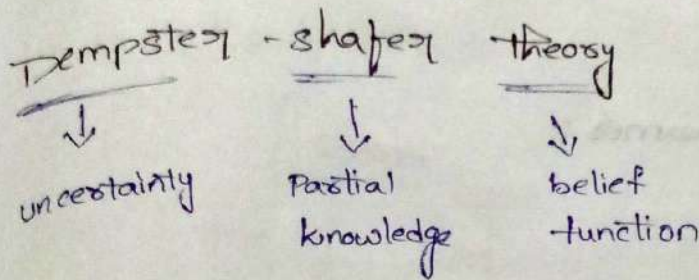 Dempster - shafer theory
uncertainty Partial belief
knowledge function